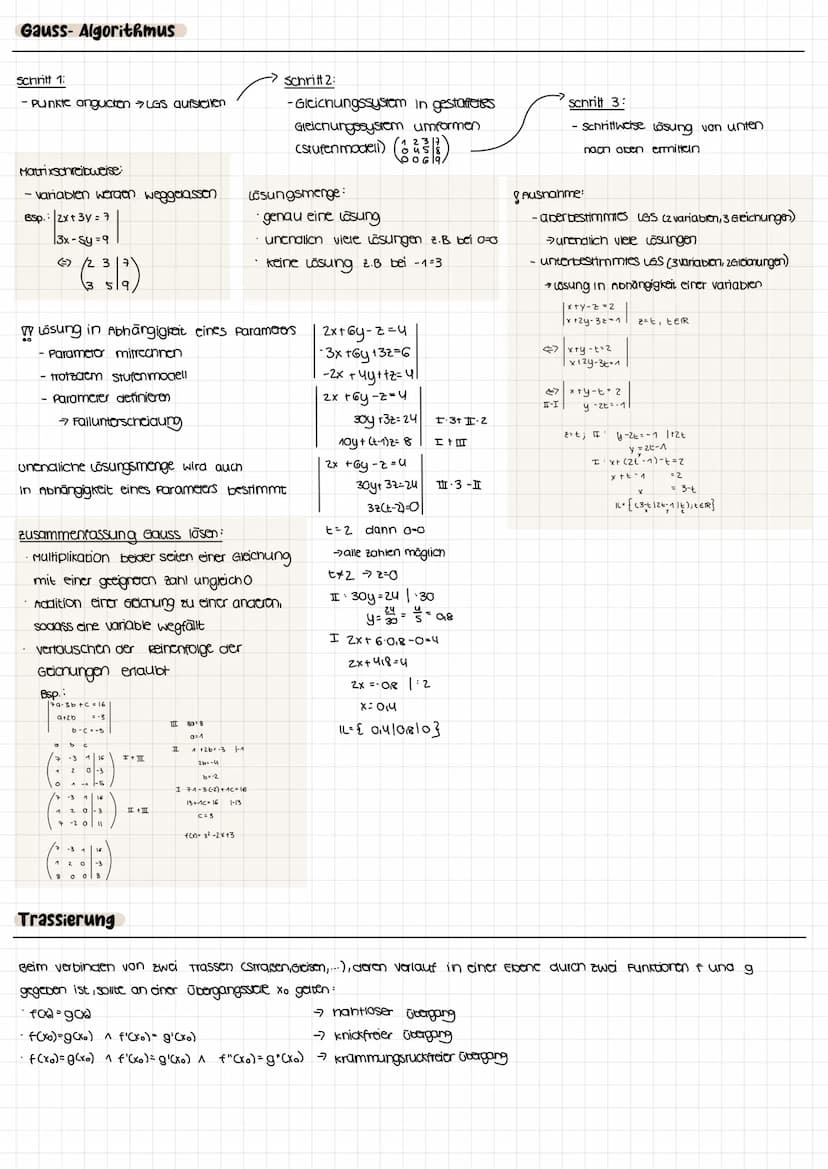 Gauss-Algorithmus
Schritt 1:
- Punkte angucken → LGS aufstellen
Schritt 2:
- Gleichungssystem in gestaffeltes
Gleichungssystem umformen
(Stufenmodell) (1 2 3 | 7
0 4 5 | 8
0 0 6 | 9)
Schritt 3:
- schrittweise Lösung von unten
nach oben ermitteln
Matrixschreibweise:
- Variablen werden weggelassen
Bsp.: |2x+3y=7|
|3x-5y=9|
⇔ (2 3 | 7
3 5 | 9)
Lösungsmenge:
· genau eine Lösung
· unendlich viele Lösungen z.B bei 0=0
· keine Lösung z.B bei -1=3
Ausnahme:
- überbestimmtes LGS (2 Variablen, 3 Gleichungen)
→ unendlich viele Lösungen
- unterbestimmtes LGS (3 Variablen, 2 Gleichungen)
→ Lösung in Abhängigkeit einer Variablen
|x+y-z=2|
|x+2y-3z=-1| z=t, t∈ℝ
⇔ |x+y-t=2|
|x+2y-3t=1|
⇔ |x+y-t=2|
II-I | y-2t=-1|
z=t; II: y-2t=-1 |+2t
y=2t-1
I: x+(2t-1)-t=2
x+t-1 =2
x = 3-t
𝕃={(3-t|2t-1|t), t∈ℝ}
!! Lösung in Abhängigkeit eines Parameters
- Parameter mitrechnen
- trotzdem Stufenmodell
- Parameter definieren
→ Fallunterscheidung
unendliche Lösungsmenge wird auch
in Abhängigkeit eines Parameters bestimmt
|2x+6y-z=4|
|-3x+6y+3z=6|
|-2x+4y+tz=4|
|2x+6y-z=4|
|30y+3z=24| I·3+II·2
|10y+(t-1)z=8| I+III
|2x+6y-z=4|
|30y+3z=24| III·3-II
|3z(t-2)=0|
t=2 dann 0=0
→ alle Zahlen möglich
t≠2 → z=0
II: 30y=24 |:30
y=24/30=4/5=0,8
I 2x+6·0,8-0=4
2x+4,8=4
2x=-0,8 |:2
x=0,4
𝕃={0,4|0,8|0}
Zusammenfassung Gauss lösen:
· Multiplikation beider Seiten einer Gleichung
mit einer geeigneten Zahl ungleich 0
· Addition einer Gleichung zu einer anderen,
sodass eine Variable wegfällt
· vertauschen der Reihenfolge der
Gleichungen erlaubt
Bsp.:
|7a-3b+c=16|
|a+2b =-3|
|b-c=-5|
a b c
(7 -3 1 | 16
1 2 0 | -3
0 1 -1 | -5) I+III
(7 -3 1 | 16
1 2 0 | -3
7 -2 0 | 11) II+III
(7 -3 1 | 16
1 2 0 | -3
8 0 0 | 8)
III 8a=8
a=1
II 1+2b=-3 |-1
2b=-4
b=-2
I 7·1-3(-2)+1c=16
13+1c=16 |-13
c=3
f(x)=x²-2x+3
Trassierung
Beim Verbinden von zwei Trassen (Straßen, Gleisen,...), deren Verlauf in einer Ebene durch zwei Funktionen f und g
gegeben ist, sollte an einer Übergangsstelle x₀ gelten:
· f(x)=g(x) → nahtloser Übergang
· f(x₀)=g(x₀) ∧ f'(x₀)=g'(x₀) → knickfreier Übergang
· f(x₀)=g(x₀) ∧ f'(x₀)=g'(x₀) ∧ f"(x₀)=g"(x₀) → krümmungsruckfreier Übergang